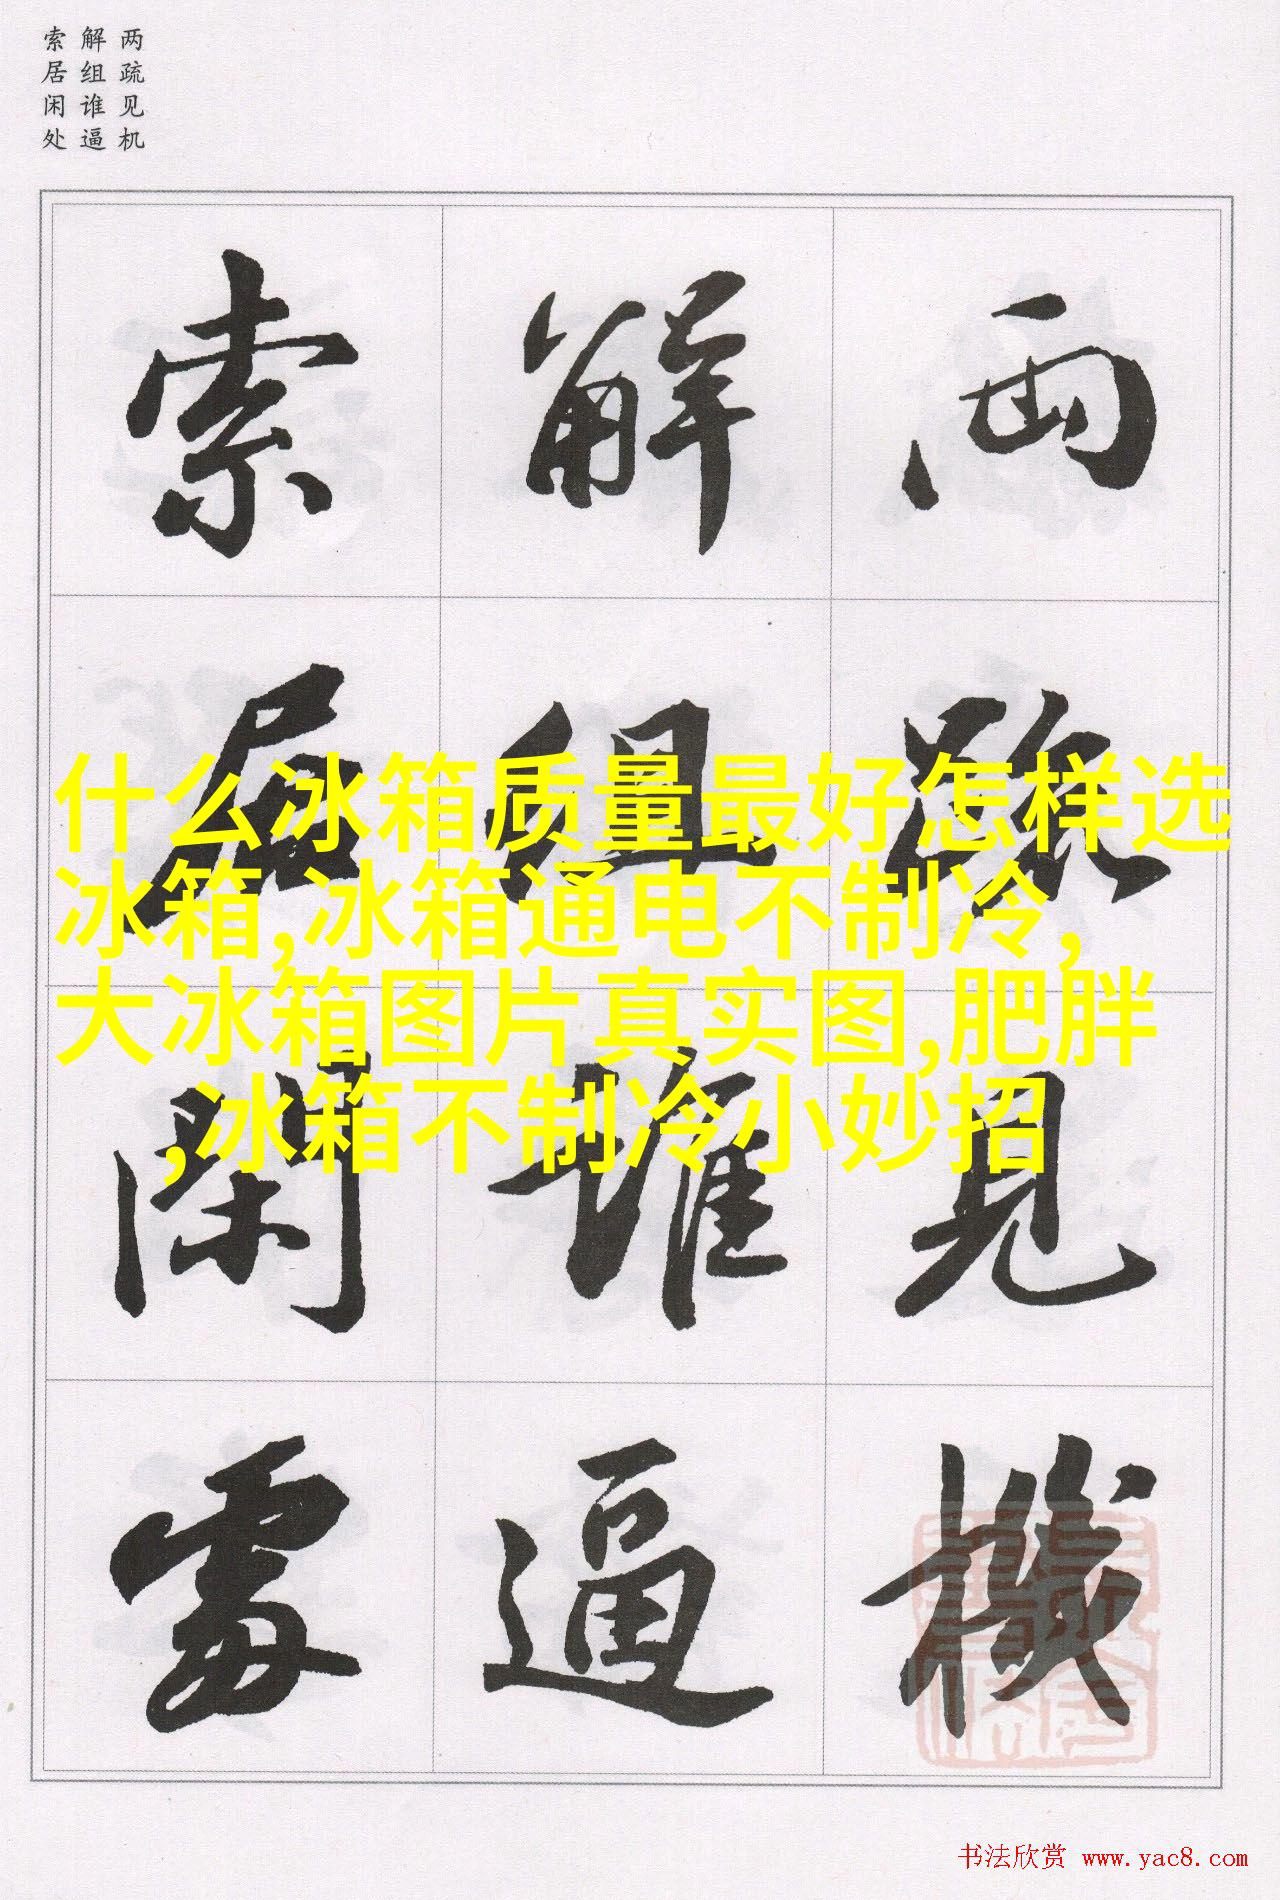 两疏见机
解组谁逼
索居闲处
两疏見機
解組誰逼
索居閑處
什么冰箱质量最好怎样选
冰箱,冰箱通电不制冷,
大冰箱图片真实图,肥胖
,冰箱不制冷小妙招
书法欣赏 www.yac8.com